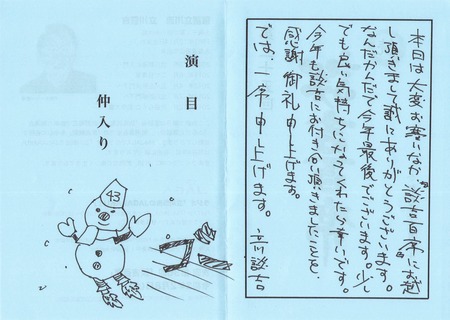 本日は大変お寒いなか、談吉百席にお越
し頂きまして誠にありがとうございます。
なんだかんだで今年最後でございます。少し
でも良い気持ちになってくれたら幸いです。
今年も談吉にお付き合い頂きましたことを、
感謝御礼申し上げます。
では、一席申し上げます。 立川談吉
演目
仲入り
43